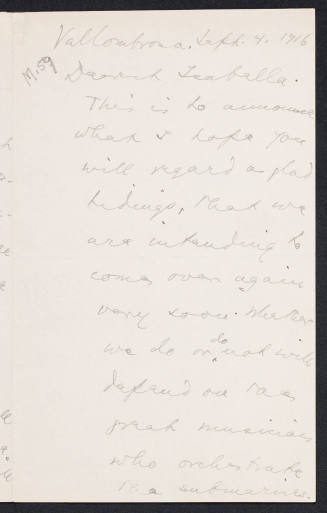 Vallombrosa. Sept. 4. 1916
M.59
Dearest Isabella.
This is to announce
what I hope you
will regard as glad
tidings, that we
are intending to
come over again
very soon. Whether
we do or do not will
depend on the
great musicians
who orchestrate
the submarines.